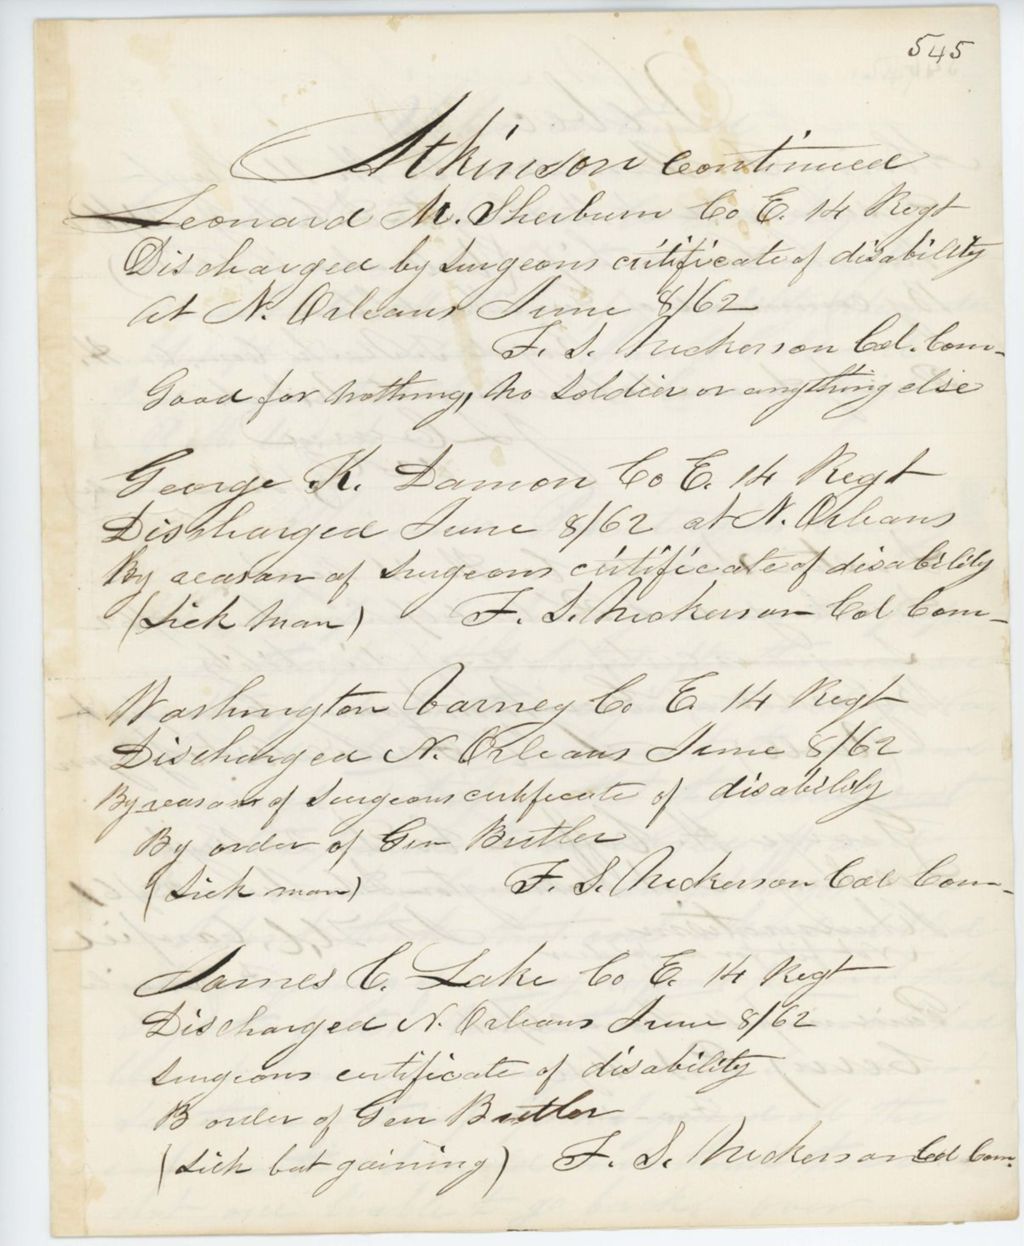 545
Atkinson Continued
Leonard M. Sherburn Co E. 14 Regt
Discharged by surgeons certificate of disability
at N. Orleans June 8/62
F. S. Nickerson Col. Com-
Good for nothing, no soldier or anything else
George K. Damon Co E. 14 Regt
Discharged June 8/62 at N. Orleans
By reason of surgeons certificate of disability
(Sick man) F. S. Nickerson Col Com-
Washington Varney Co E 14 Regt
Discharged N. Orleans June 8/62
By reason of surgeons certificate of disability
By order of Gen Butler
(Sick man) F. S. Nickerson Col Com-
James C. Lake Co E. 14 Regt
Discharged N. Orleans June 8/62
surgeons certificate of disability
B order of Gen Butler
(Sick but gaining) F. S. Nickerson Col Com.